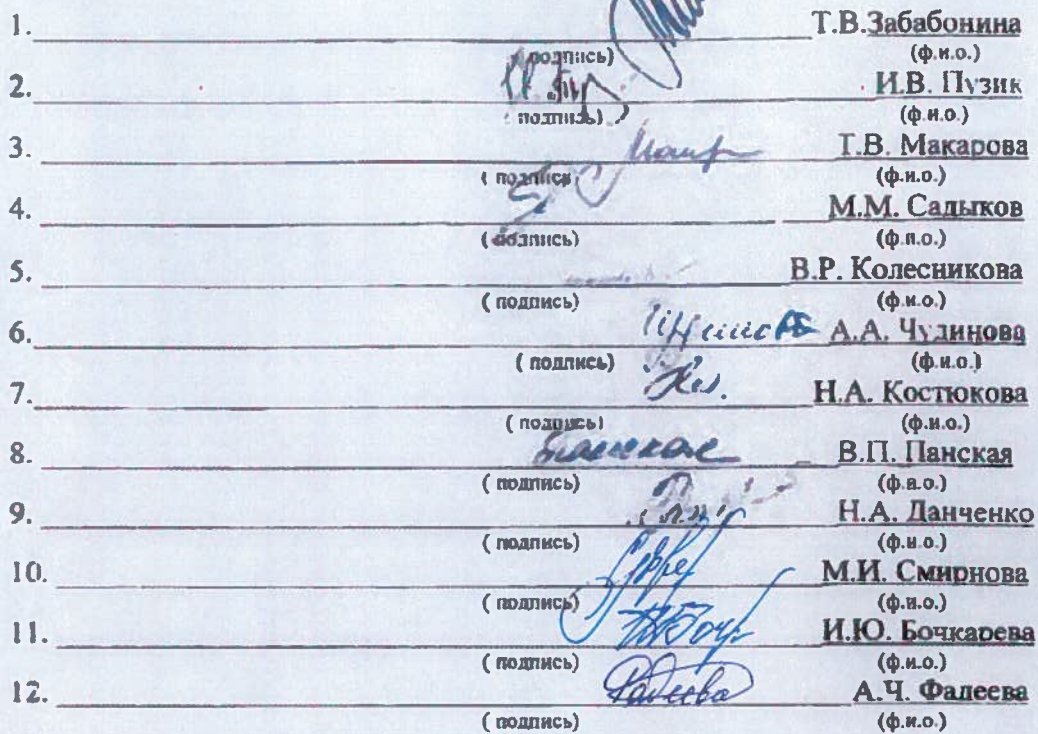 1. Т.В.Забабонина
(подпись) (ф.и.о.)
2. И.В. Пузик
(подпись) (ф.и.о.)
3. Т.В. Макарова
(подпись) (ф.и.о.)
4. М.М. Садыков
(подпись) (ф.и.о.)
5. В.Р. Колесникова
(подпись) (ф.и.о.)
6. А.А. Чудинова
(подпись) (ф.и.о.)
7. Н.А. Костюкова
(подпись) (ф.и.о.)
8. Панская В.П. Панская
(подпись) (ф.и.о.)
9. Н.А. Данченко
(подпись) (ф.и.о.)
10. М.И. Смирнова
(подпись) (ф.и.о.)
11. И.Ю. Бочкарева
(подпись) (ф.и.о.)
12. Фадеева А.Ч. Фадеева
(подпись) (ф.и.о.)